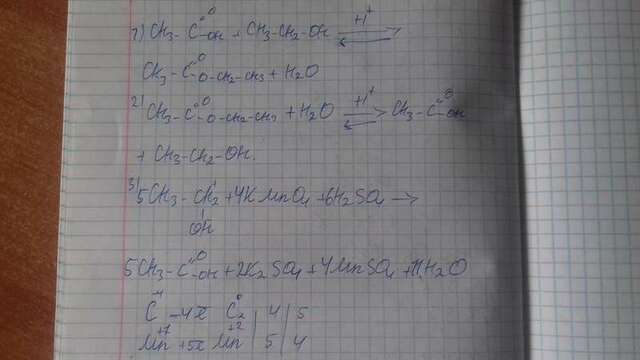 1) CH3-C=O-OH + CH3-CH2-OH ⇌ +H+
CH3-C=O-O-CH2-CH3 + H2O
2) CH3-C=O-O-CH2-CH3 + H2O ⇌ +H+ CH3-C=O-OH
+ CH3-CH2-OH.
3) 5CH3-CH2 + 4KMnO4 + 6H2SO4 →
OH
5CH3-C=O-OH + 2K2SO4 + 4MnSO4 + 11H2O
C -4e C 4 5
Mn+7 +5e Mn+2 5 4